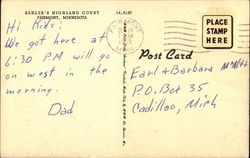 KAHLER'S HIGHLAND COURT
FAIRMONT, MINNESOTA
14,416F
Hi Kids!
We got here at
6:30 P.M will go
on west in the
morning.
Dad
PLACE
STAMP
HERE
Post Card
Earl & Barbara
P.O. Box 35
Cadillac, Mich